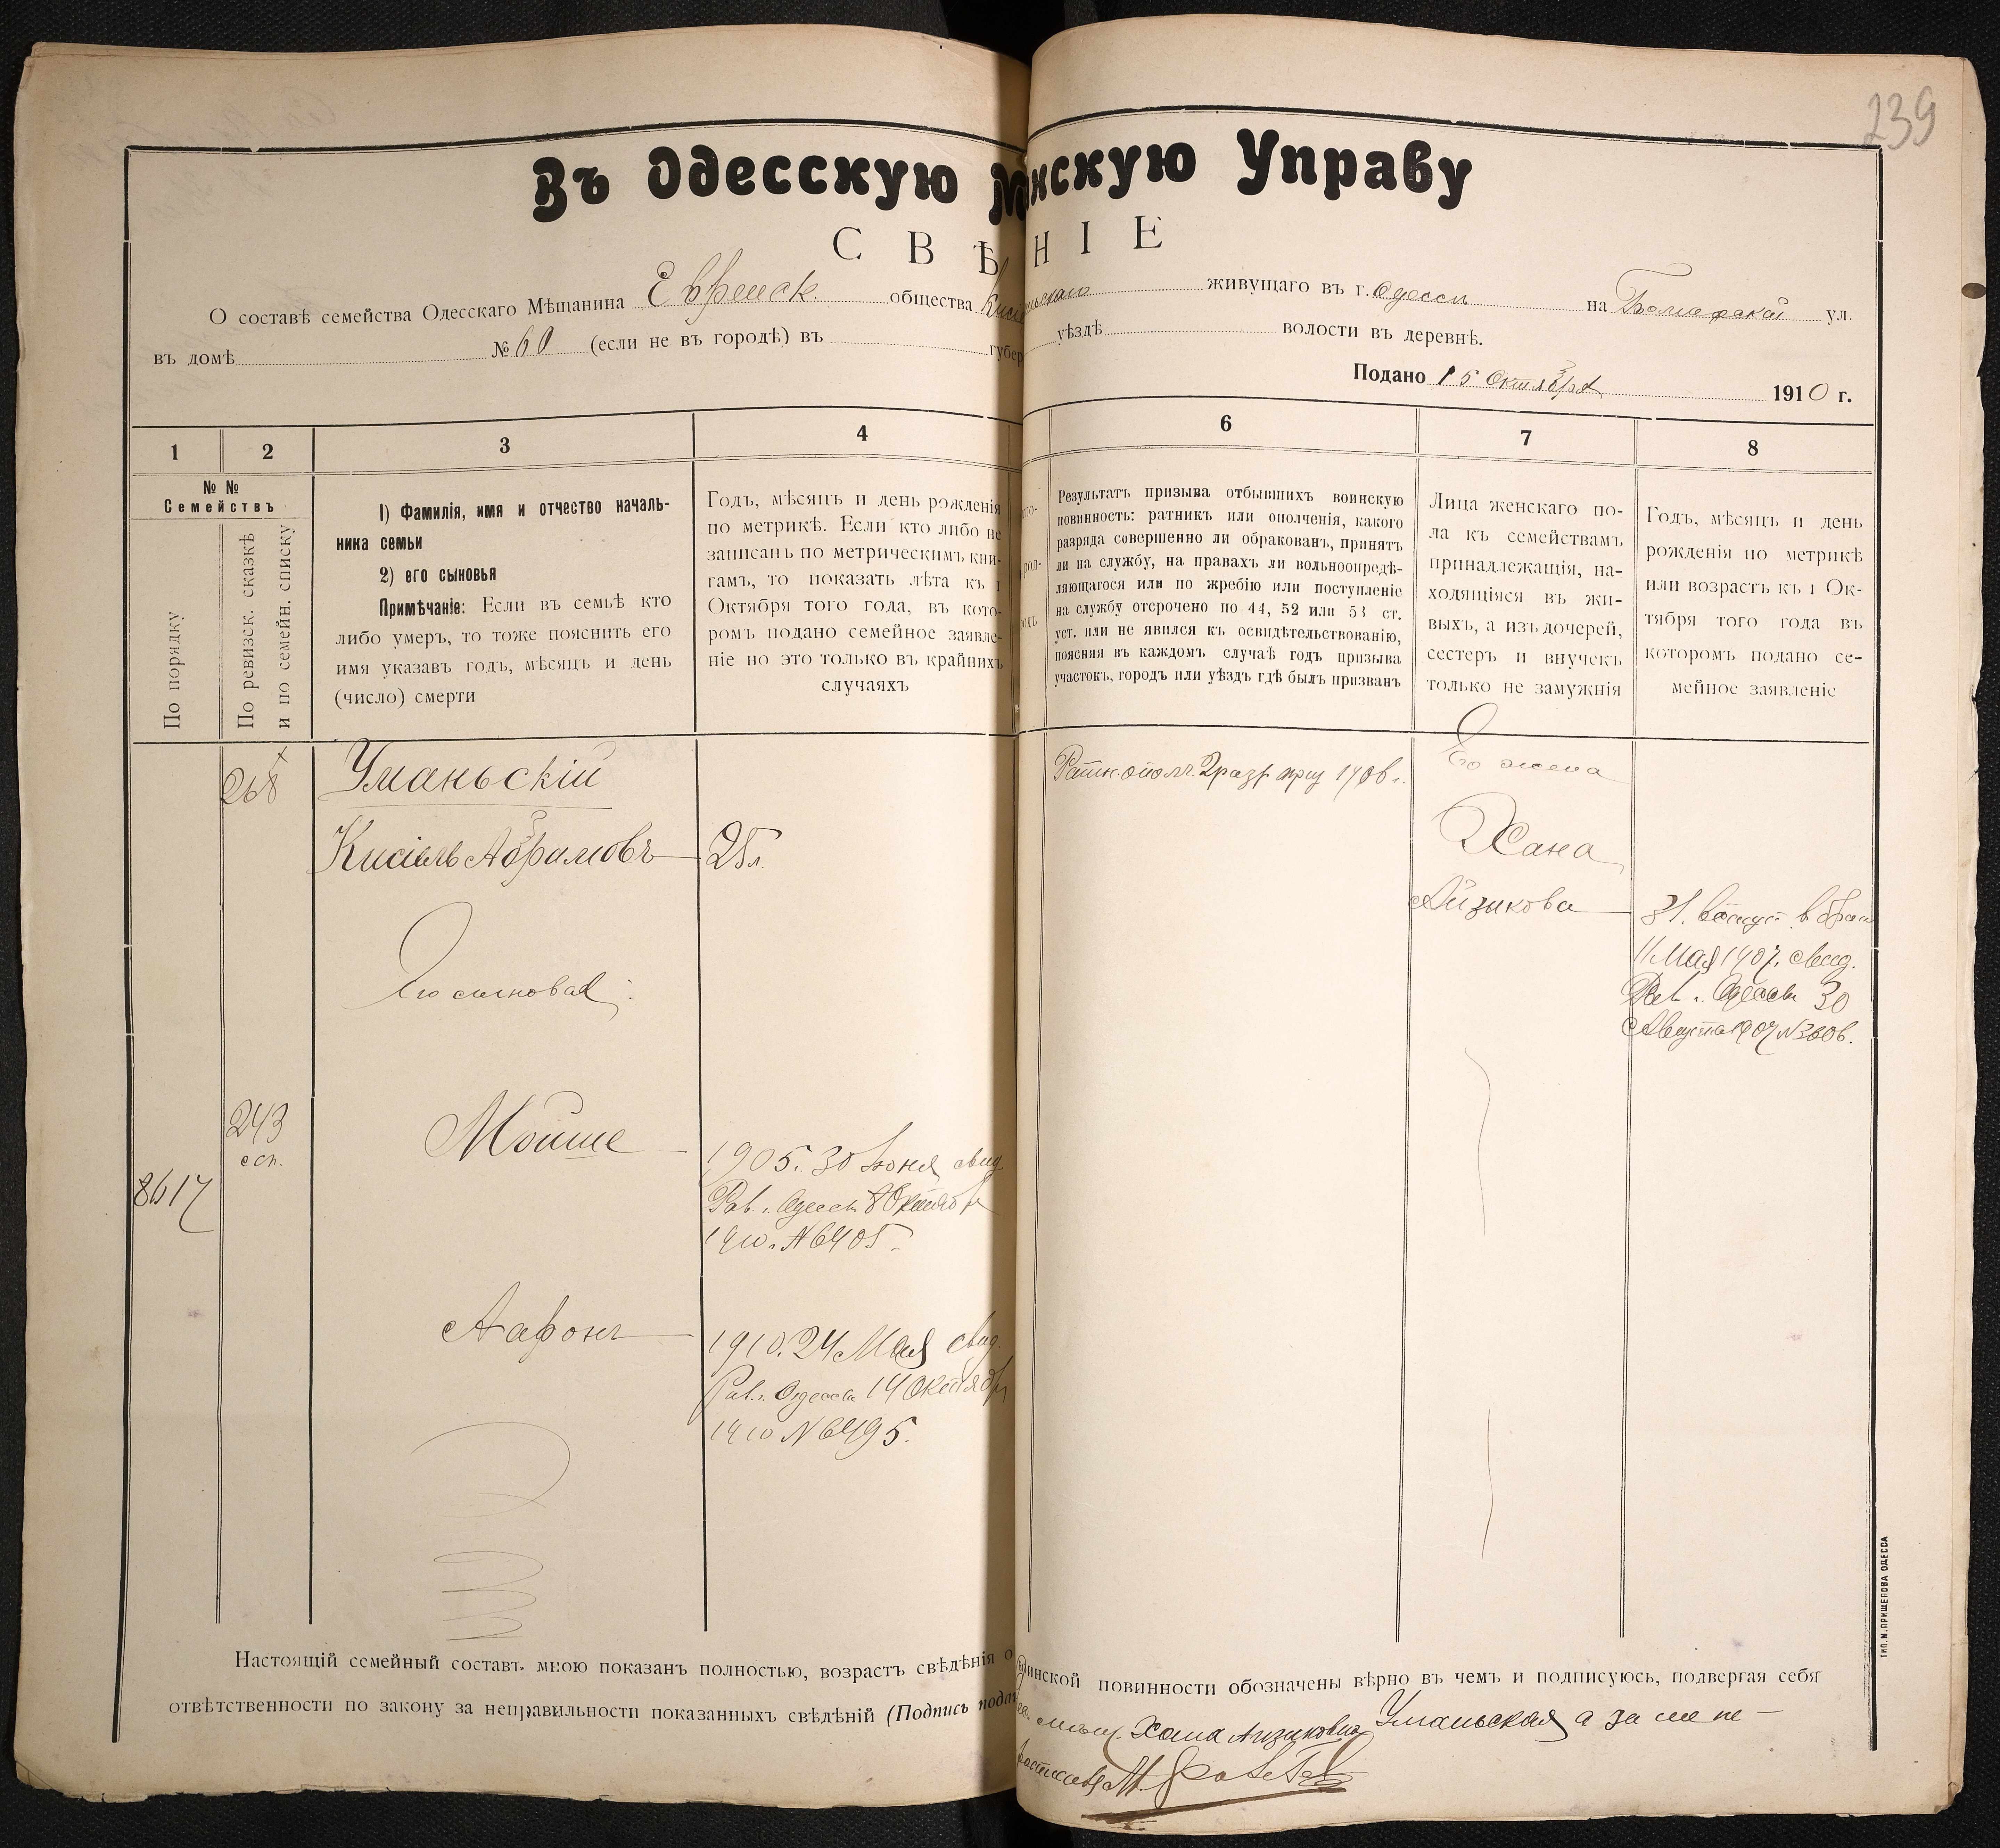 239
Въ Одесскую М нскую Управу
СВѢ НІЕ
О составѣ семейства Одесскаго Мѣщанина Еврейск. общества живущаго въ г. Одессѣ на ул.
въ домѣ № 60 (если не въ городѣ) въ губер уѣздѣ волости въ деревнѣ.
Подано 15 Октября 1910 г.
1 2 3 4 6 7 8
№ №
Семействъ
По порядку
По ревизск. сказкѣ
и по семейн. списку
1) Фамилія, имя и отчество началь-
ника семьи
2) его сыновья
Примѣчаніе: Если въ семьѣ кто
либо умеръ, то тоже пояснить его
имя указавъ годъ, мѣсяцъ и день
(число) смерти
Годъ, мѣсяцъ и день рожденія
по метрикѣ. Если кто либо не
записанъ по метрическимъ кни-
гамъ, то показать лѣта къ 1
Октября того года, въ кото-
ромъ подано семейное заявле-
ніе но это только въ крайнихъ
случаяхъ
Результатъ призыва отбывшихъ воинскую
повинность: ратникъ или ополченія, какого
разряда совершенно ли обракованъ, принятъ
ли на службу, на правахъ ли вольноопредѣ-
ляющагося или по жребію или поступленіе
на службу отсрочено по 44, 52 или 53 ст.
уст. или не явился къ освидѣтельствованію,
поясняя въ каждомъ случаѣ годъ призыва
участокъ, городъ или уѣздъ гдѣ былъ призванъ
Лица женскаго по-
ла къ семействамъ
принадлежащія, на-
ходящіяся въ жи-
выхъ, а изъ дочерей,
сестеръ и внучекъ
только не замужнія
Годъ, мѣсяцъ и день
рожденія по метрикѣ
или возрастъ къ 1 Ок-
тября того года въ
которомъ подано се-
мейное заявленіе
268
Уманьскій
Кисіель Абрамовъ
28 л.
Ратн. ополч. 2 разр. приз 1906 г.
Его жена
Хана
Айзикова
31. вступ. в брак
11 Мая 1907. свид.
Рав. г. Одессы 30
Августа 1907 № 3606.
Его сыновья:
243
е сп.
8617
Мойше
1905. 30 Іюня свид
Рав. г. Одессы 8 Октября
1910. № 6405.
Ааронъ
1910. 24 Мая свид.
Рав. г. Одессы 14 Октября
1910 № 6495.
Настоящій семейный составъ мною показанъ полностью, возрастъ свѣдѣнія о воинской повинности обозначены вѣрно въ чемъ и подписуюсь, подвергая себя
отвѣтственности по закону за неправильности показанныхъ свѣдѣній (Подпись пода
мѣщ. Хана Айзиковна Уманьская а за не не-
ТИП. М. ПРИЩЕПОВА ОДЕССА